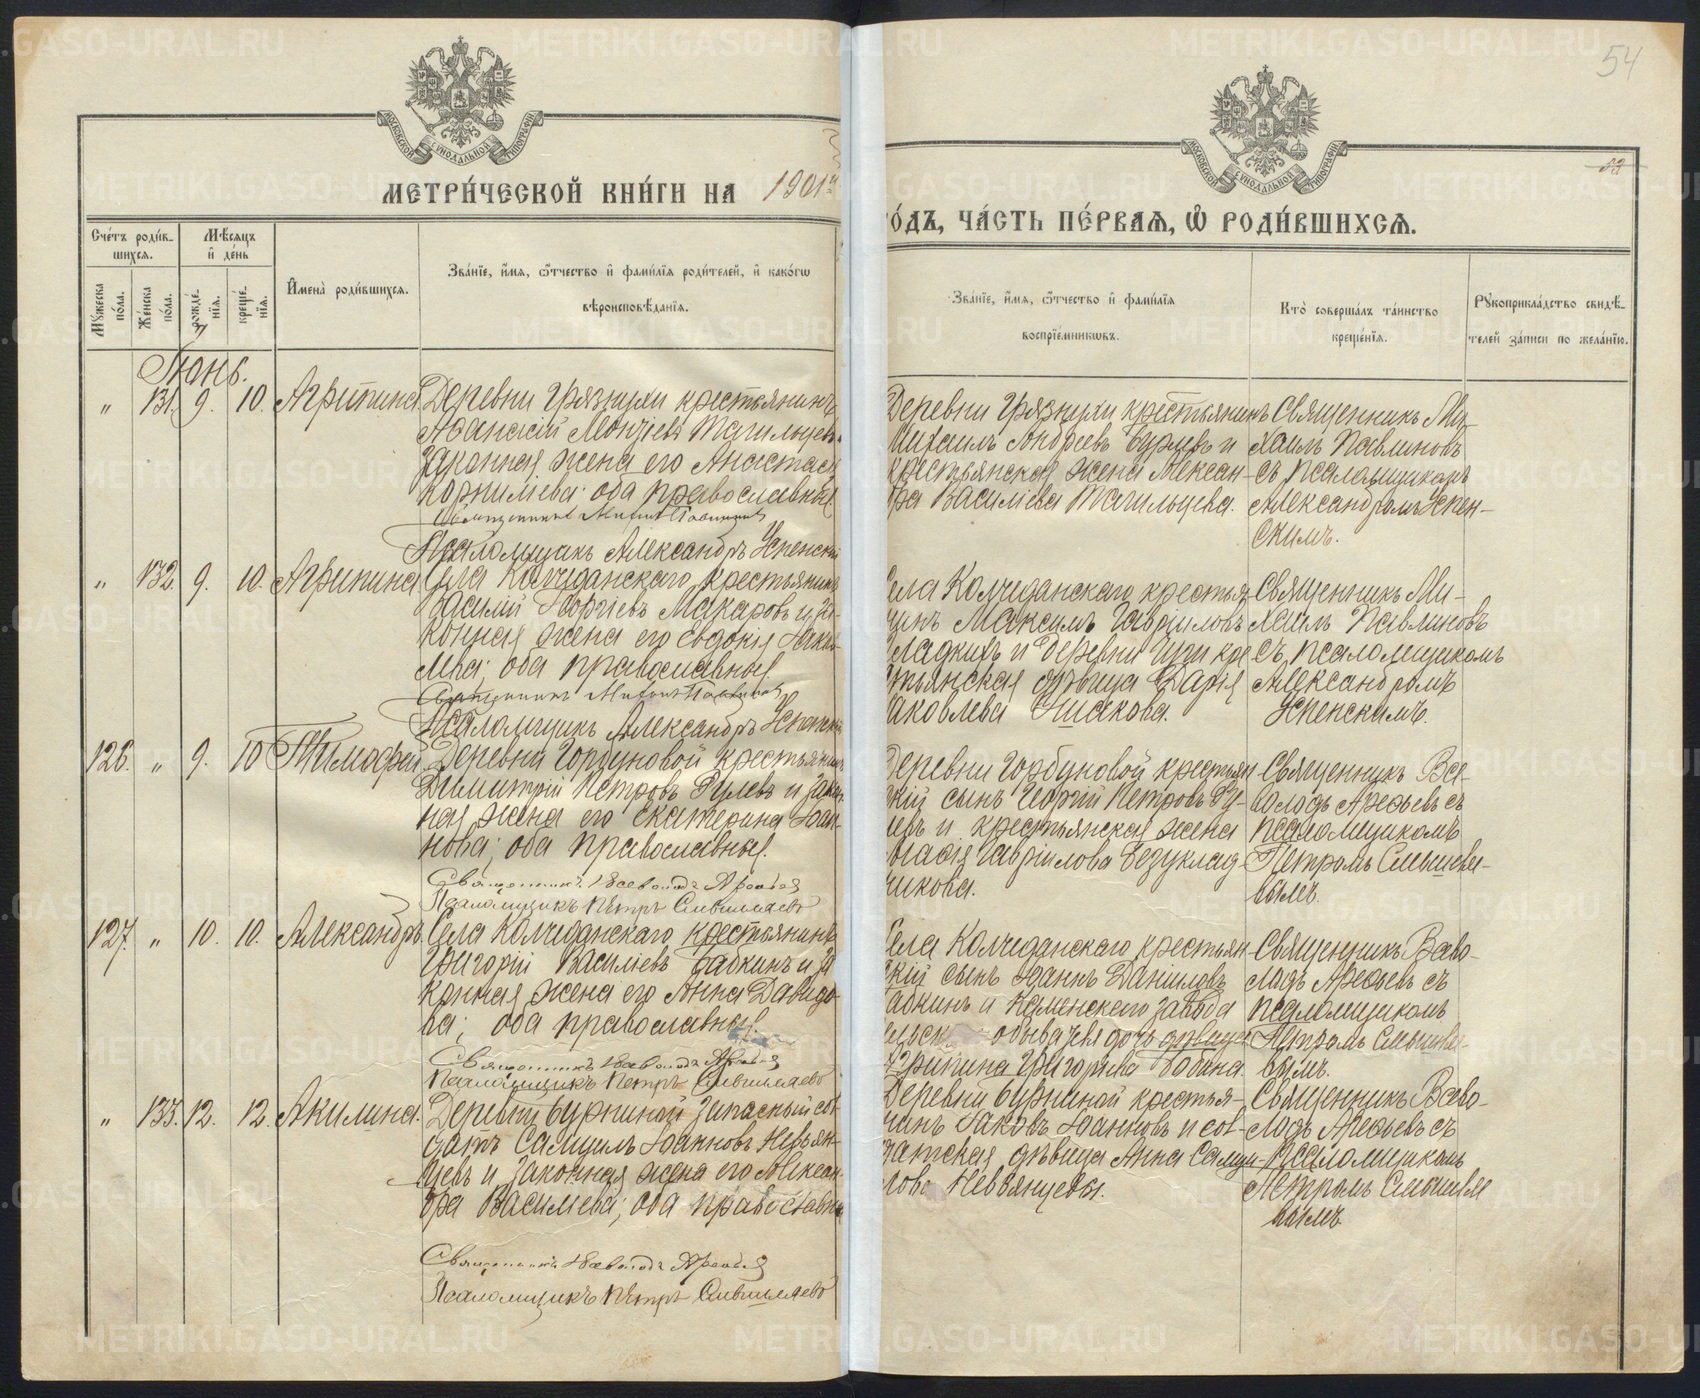 54
МЕТРИ́ЧЕСКОЙ КНИ́ГИ НА 1901й
го́дъ, ЧА́СТЬ ПЕ́РВАѦ, Ѿ РОДИ́ВШИХСѦ.
Сче́тъ роди́в-
шихсѧ.
Мѣ́сѧцъ
и҆ де́нь
И҆мена̀ роди́вшихсѧ.
Зва́нїе, и҆́мѧ, ѻ҆́тчество и҆ фами́лїѧ роди́телей, и҆ како́гѡ
вѣроисповѣ́данїѧ.
Мꙋ́жеска
по́ла.
Же́нска
по́ла.
рожде́-
нїѧ.
креще́-
нїѧ.
Зва́нїе, и҆́мѧ, ѻ҆́тчество и҆ фами́лїѧ
воспрїе́мникѡвъ.
Кто̀ соверша́лъ та́инство
креще́нїѧ.
Рꙋкоприкла́дство свидѣ́-
телей за́писи по жела́нїю.
Іюнь.
" 131. 9. 10. Агрипина
Деревни Грязнухи крестьянинъ
Тагильцевъ
законная жена его Анастасія
Корниліева; оба православные.
Псаломщикъ Александръ Успенскій
Деревни Грязнухи крестьянинъ
Михаилъ Андреевъ Бурцевъ и
крестьянская жена Алексан-
дра Василіева Тагильцева.
Священникъ Ми-
хаилъ Павлиновъ
съ псаломщикомъ
Александромъ Успен-
скимъ.
" 132. 9. 10. Агрипина
Села Колчеданскаго крестьянинъ
Василій Георгіевъ Макаровъ и за-
конная жена его Евдокія Іаков-
лева; оба православные.
Священникъ Михаилъ Павлиновъ
Псаломщикъ Александръ Успенскій
Села Колчеданскаго крестья-
нинъ Максимъ Гавріиловъ
Гладкихъ и деревни кре-
стьянская дѣвица Дарія
Іаковлева
Священникъ Ми-
хаилъ Павлиновъ
съ псаломщикомъ
Александромъ
Успенскимъ.
126. " 9. 10 Тимофей
Деревни Горбуновой крестьянинъ
Димитрій Петровъ Рулевъ и закон-
ная жена его Екатерина Іоан-
нова; оба православные.
Священникъ Всеволодъ Арефьев
Псаломщикъ Петръ
Деревни Горбуновой крестьян-
скій сынъ Георгій Петровъ Ру-
левъ и крестьянская жена
Гавріилова Безуклад-
никова.
Священникъ Все-
володъ Арефьевъ съ
псаломщикомъ
Петромъ
127. " 10. 10. Александръ.
Села Колчеданскаго крестьянинъ
Григорій Василіевъ Бабкинъ и за-
конная жена его Анна Давидо-
ва; оба православные.
Священникъ Всеволодъ Арефьев
Псаломщикъ Петръ
Села Колчеданскаго крестьян-
скій сынъ Іоаннъ Даніиловъ
Бабкинъ и Каменскаго завода
дочь дѣвица
Агрипина Григорьева
Священникъ Всево-
лодъ Арефьевъ съ
псаломщикомъ
Петромъ
" 133. 12. 12. Акилина.
Деревни Бурниной запасный сол-
датъ Самуилъ Іоанновъ Невьян-
цевъ и законная жена его Алексан-
дра Василіева; оба православные
Священникъ Всеволодъ Арефьев
Псаломщикъ Петръ
Деревни Бурниной крестья-
нинъ Іаковъ Іоанновъ и сол-
датская дѣвица Анна Самуи-
лова Невьянцевы.
Священникъ Всево-
лодъ Арефьевъ съ
псаломщикомъ
Петромъ